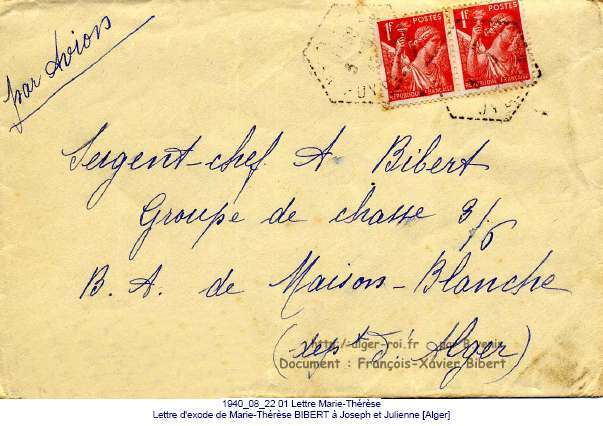 par Avion
1F POSTES 1F POSTES
REPUBLIQUE FRANCAISE REPUBLIQUE FRANCAISE
Sergent-chef A Bibert
Groupe de chasse 3/6
B. A. de Maison-Blanche
(dept d'Alger)
http://alger-roi.fr
Document : François-Xavier Bibert
1940_08_22 01 Lettre Marie-Thérèse
Lettre d'exode de Marie-Thérèse BIBERT à Joseph et Julienne [Alger]